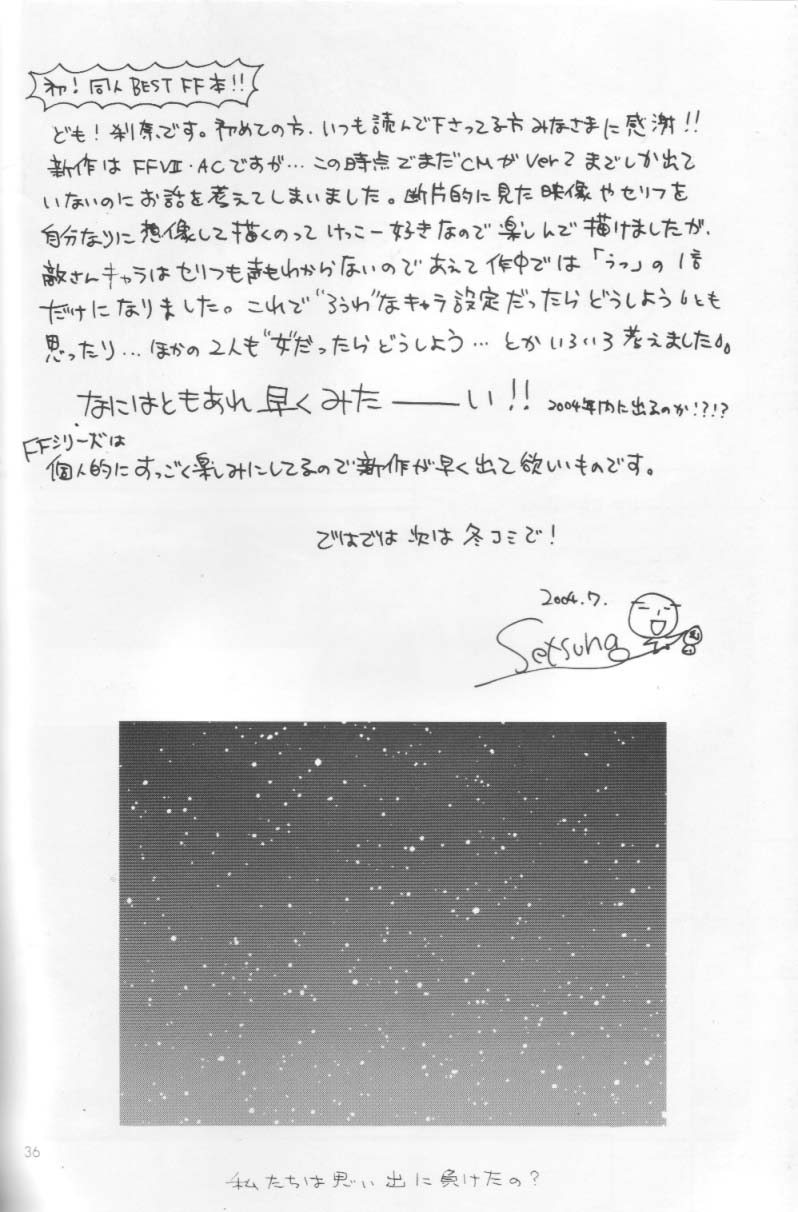 初！同人BEST FF本!!
ども！刹奈です。初めての方、いつも読んで下さってる方 みなさまに感謝!!
新作はFFⅦ・ACですが…この時点でまだCMがVer2までしか出て
いないのにお話を考えてしまいました。断片的に見た映像やセリフを
自分なりに想像して描くのってけっこー好きなので楽しんで描けましたが、
敵さんキャラはセリフも声もわからないのであえて作中では「うっ」の1音
だけになりました。これで“ろうわ”なキャラ設定だったらどうしようとも
思ったり…ほかの2人も“女”だったらどうしよう…とかいろいろ考えました。
なにはともあれ早くみたーーい!! 2004年内に出るのか!?!?
FFシリーズは
個人的にすっごく楽しみにしてるので新作が早く出て欲しいものです。
ではでは次は冬コミで！
2004.7.
Setsuna
36
私たちは思い出に負けたの？